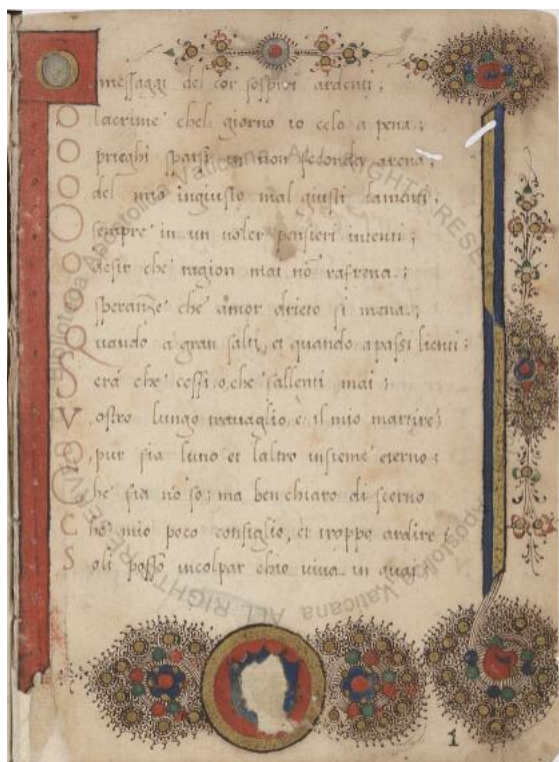 messaggi del cor sospiri ardenti ;
lacrime chel giorno io celo a pena ;
prieghi sparsi in non feconda arena ;
del mio ingiusto mal giusti lamenti ;
sempre in un voler pensieri intenti ;
desir che ragion mai nō rafrena ;
speranze che amor drieto si mena ;
uando a gran salti, et quando a passi lienti ;
era che cessi, o che sallenti mai ;
V ostro lungo travaglio, e il mio martire ;
pur fia luno et laltro insieme eterno ;
he fia nō so ; ma ben chiaro discerno
C he mio poco consiglio, et troppo ardire ;
S oli posso incolpar chio viva in guai
1
Biblioteca Apostolica Vaticana ALL RIGHTS RESERVED
Apostolica Vaticana ALL RIGHTS RESERVED